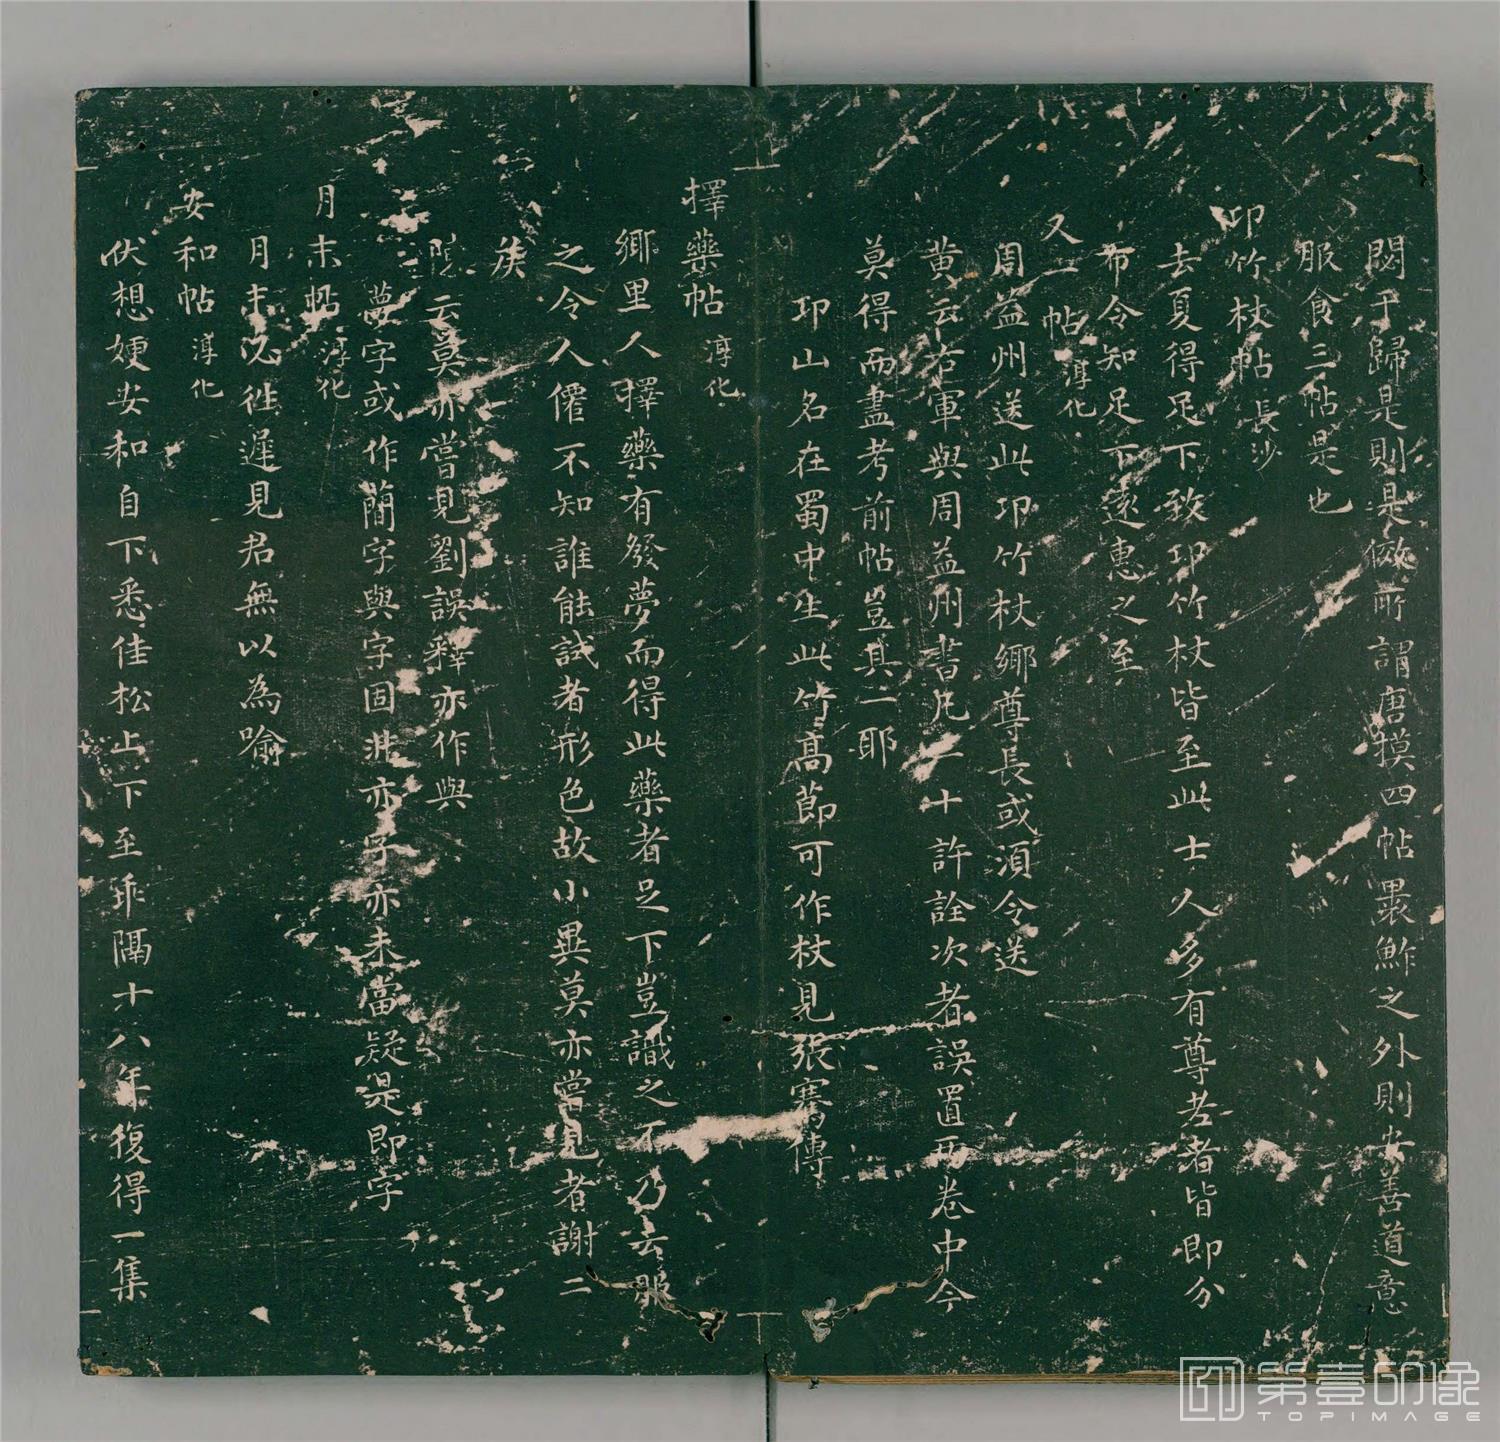 閣于歸是則是儆所謂唐摸四帖裹鮓之外則安善道意
服食三帖是也
邛竹杖帖 長沙
去夏得足下致邛竹杖皆至此士人多有尊老者皆即分
布令知足下遠惠之至
又一帖 淳化
周益州送此邛竹杖卿尊長或須今送
黄云右軍與周益州書凡二十許詮次者誤置兩卷中今
莫得而盡考前帖豈其一耶
邛山名在蜀中生此竹高節可作杖見張騫傳
擇藥帖 淳化
鄉里人擇藥有發夢而得此藥者足下豈識之不乃云服
之令人僊不知誰能試者形色故小異莫亦嘗見者謝二
侯
云莫亦嘗見劉誤釋亦作與
夢字或作蕳字與字固非亦字亦未當疑是即字
月末帖 淳化
月末必往遲見君無以為喻
安和帖 淳化
伏想嫂安和自下悉佳松上下至乖隔十八年復得一集
第壹印像
TOPIMAGE